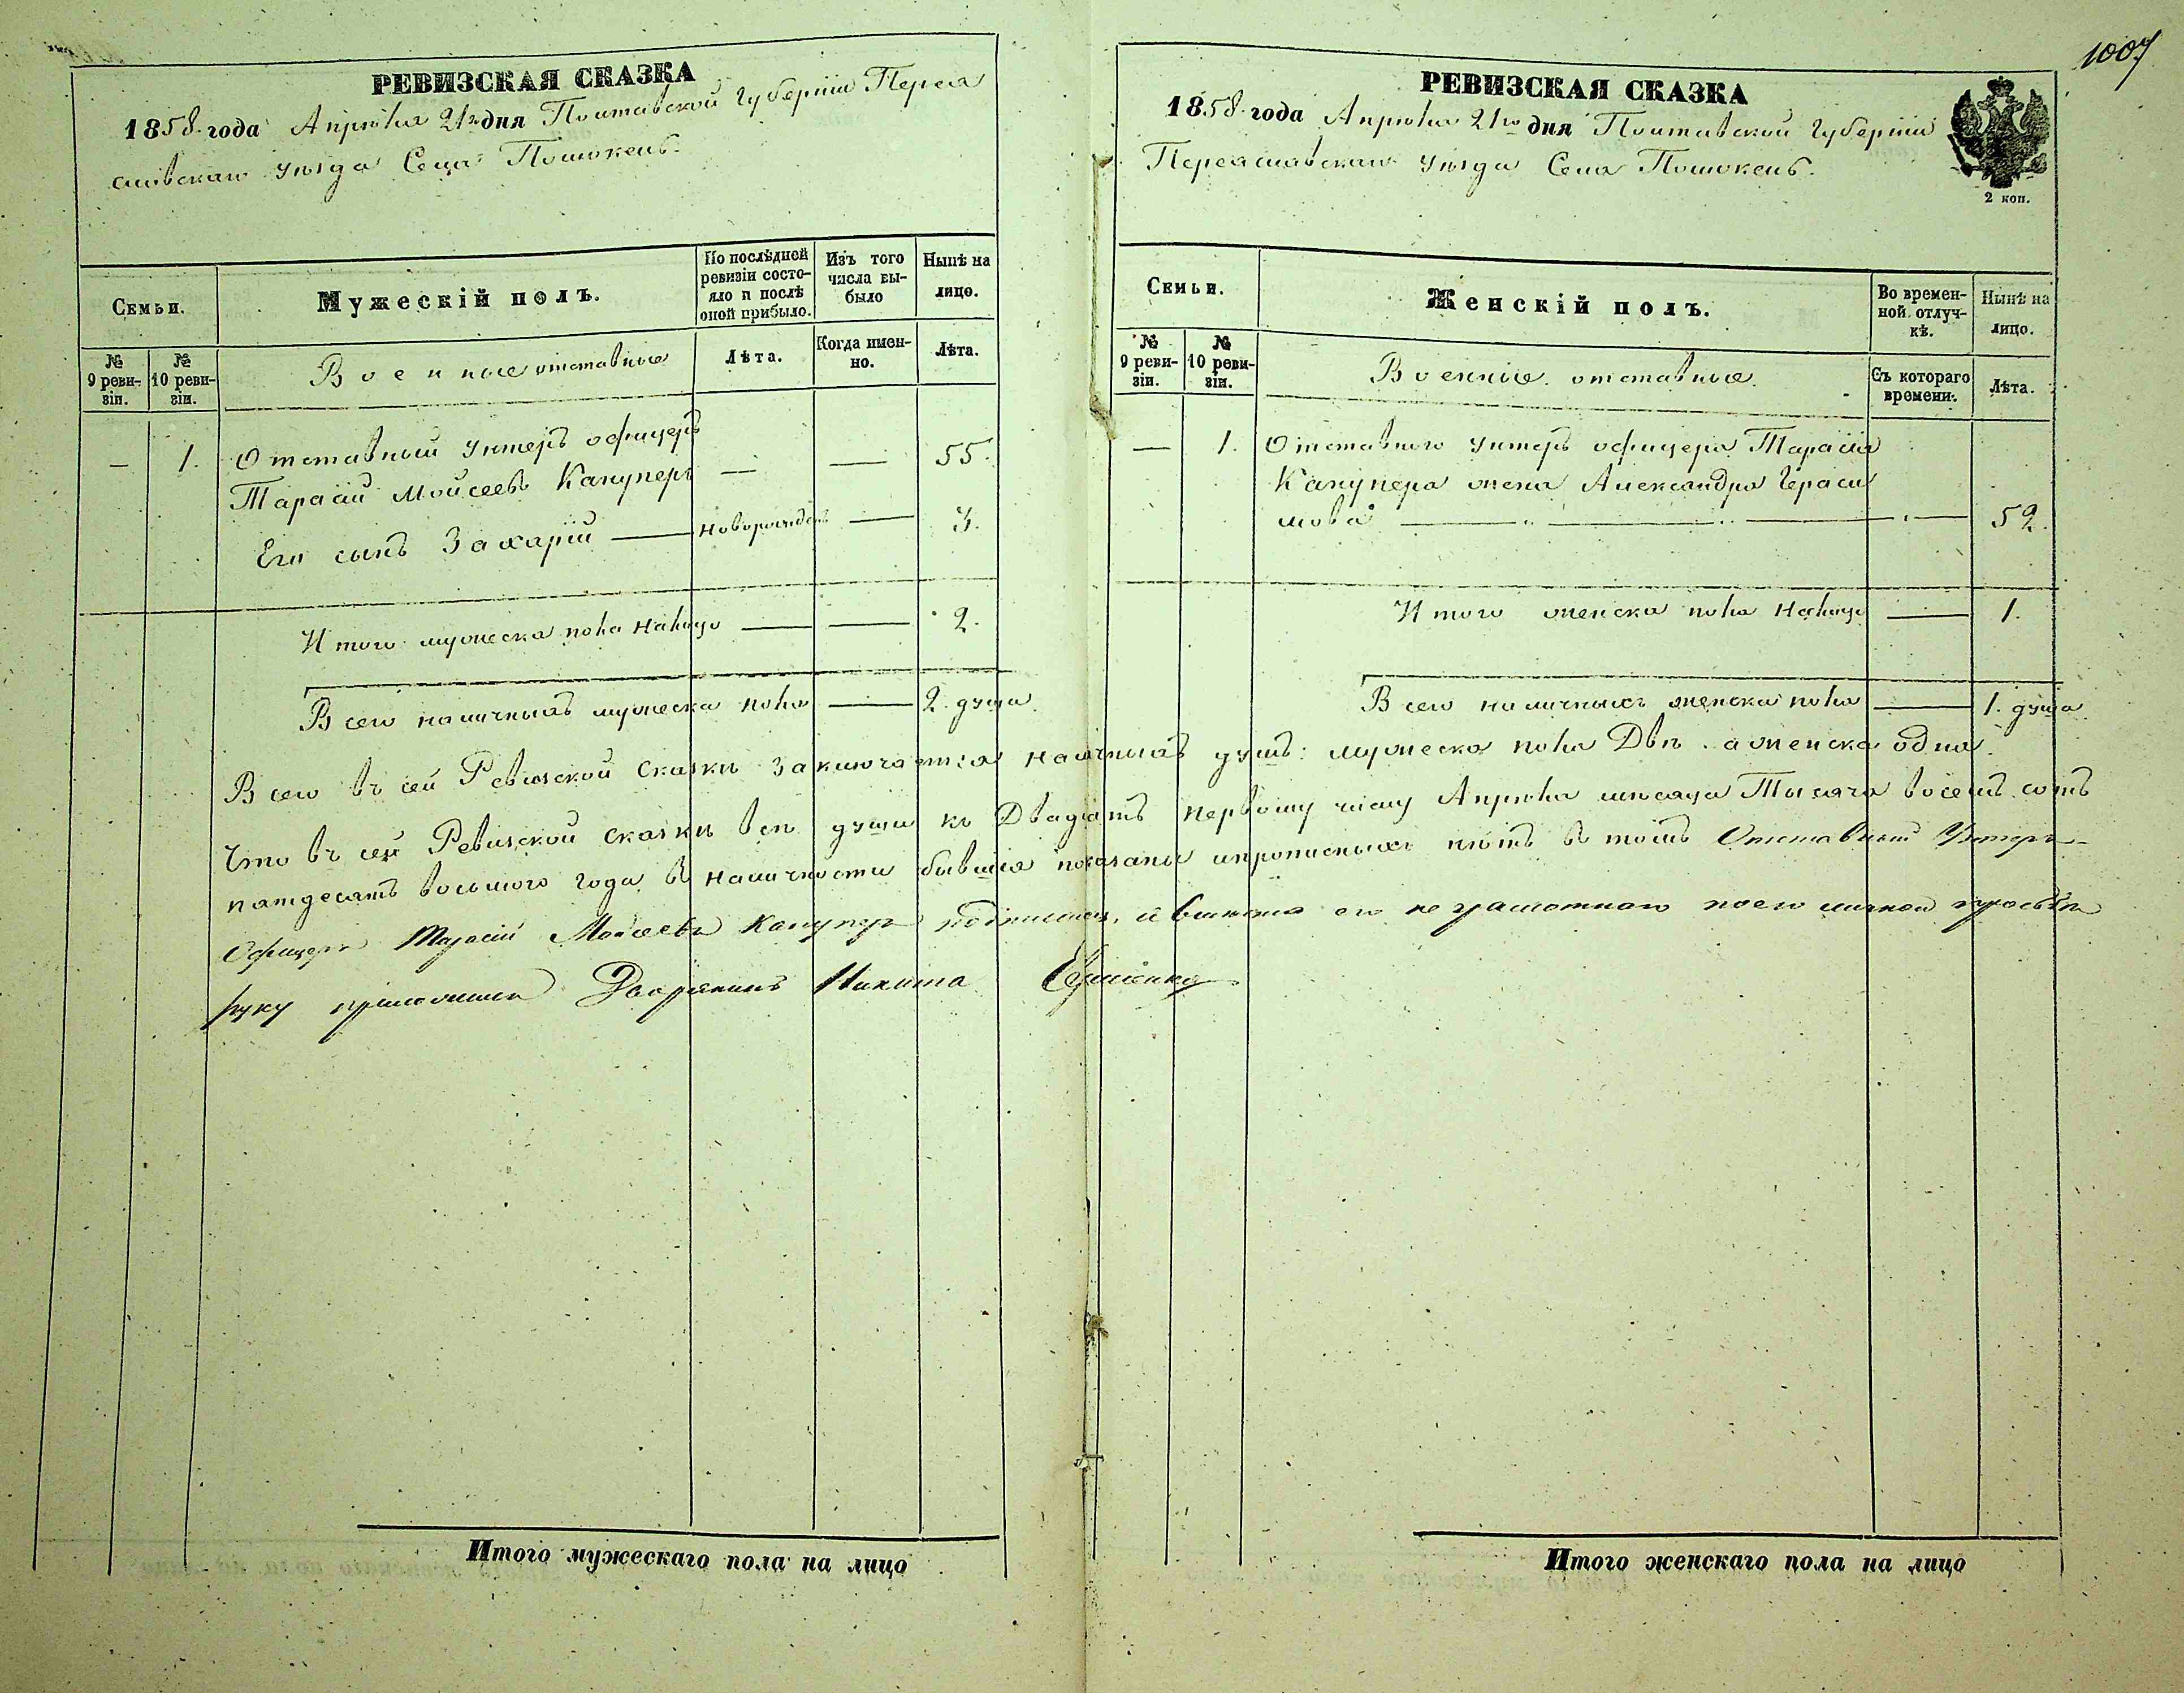 1007
РЕВИЗСКАЯ СКАЗКА
1858 года Апрѣля 21го дня Полтавской Губерніи Перея
славскаго уѣзда Села Пошокень.
Семьи.
Мужескій полъ.
По послѣдней ревизіи состояло и послѣ оной прибыло.
Изъ того числа выбыло
Нынѣ на лицо.
№ 9 ревизіи.
№ 10 ревизіи.
Военные отставные
Лѣта.
Когда именно.
Лѣта.
— 1. Отставный Унтеръ офицеръ
Тарасій Моисеевъ Канупер — — 55.
Его сынъ Захарій — новорожденъ — 3.
Итого мужеска пола налицо — — 2.
Всего наличныхъ мужеска пола — 2. души
РЕВИЗСКАЯ СКАЗКА
1858 года Апрѣля 21го дня Полтавской Губерніи
Переяславскаго уѣзда Села Пошокень.
2 коп.
Семьи.
Женскій полъ.
Во временной отлучкѣ.
Нынѣ на лицо.
№ 9 ревизіи.
№ 10 ревизіи.
Военніе отставные.
Съ котораго времени.
Лѣта.
— 1. Отставного Унтеръ офицера Тарасія
Канупера жена Александра Гераси
мова — 52.
Итого женска пола налицо — 1.
Всего наличныхъ женска пола — 1. душа
Всего въ сей Ревизской Сказкѣ заключается наличныхъ душъ: мужеска пола Двѣ. а женска одна.
Что въ сей Ревизской сказкѣ всѣ души ко Двадцать первому числу Апрѣля мѣсяца Тысяча восемь сотъ
пятдесятъ восьмого года въ наличности бывшія показаны и прописныхъ нѣтъ въ томъ Отставный Унтеръ-
Офицеръ Тарасій Моисеевъ Канупер подписался, а вмѣсто его неграмотнаго по его личной просьбѣ
руку приложилъ Дворянинъ Никита
Итого мужескаго пола на лицо
Итого женскаго пола на лицо